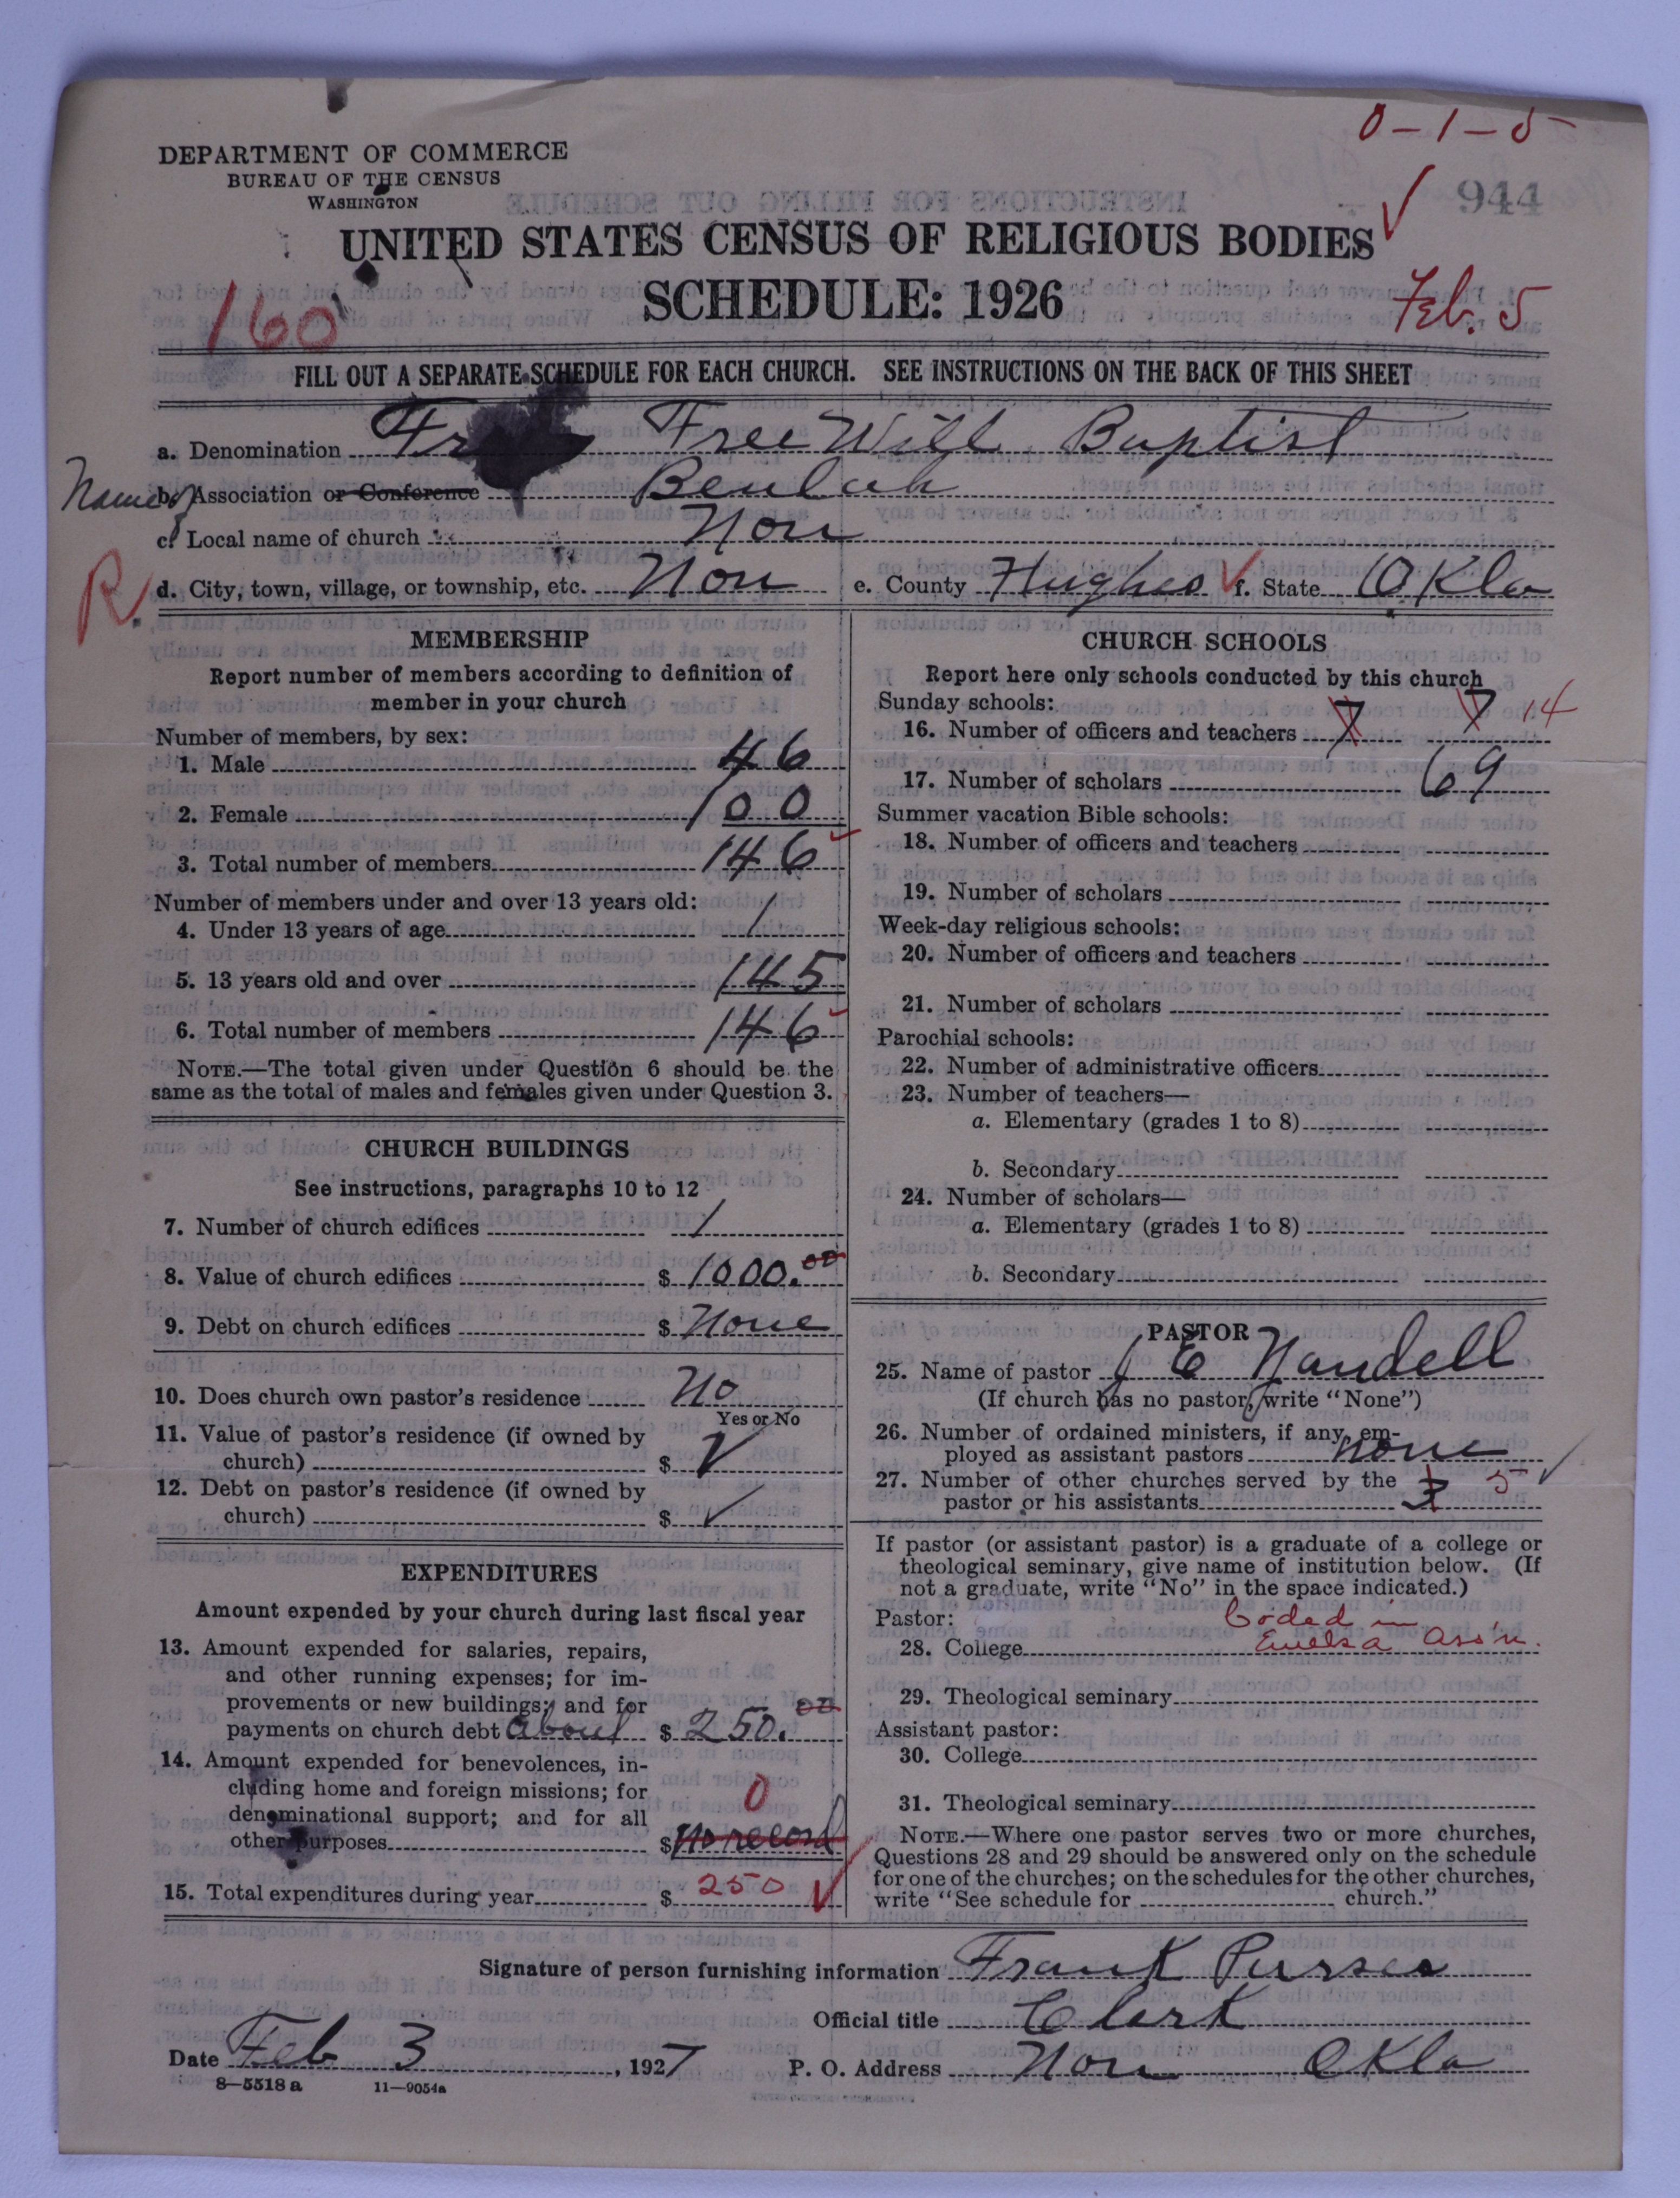 0-1-5
DEPARTMENT OF COMMERCE
BUREAU OF THE CENSUS
WASHINGTON
944
UNITED STATES CENSUS OF RELIGIOUS BODIES
SCHEDULE: 1926
160
Feb. 5
FILL OUT A SEPARATE SCHEDULE FOR EACH CHURCH. SEE INSTRUCTIONS ON THE BACK OF THIS SHEET
a. Denomination Fr Free Will Baptist
Name of b. Association or Conference Beulah
c. Local name of church Non
R. d. City, town, village, or township, etc. Non e. County Hughes f. State Okla
MEMBERSHIP
Report number of members according to definition of
member in your church
Number of members, by sex:
1. Male 46
2. Female 100
3. Total number of members 146
Number of members under and over 13 years old:
4. Under 13 years of age 1
5. 13 years old and over 145
6. Total number of members 146
NOTE.—The total given under Question 6 should be the
same as the total of males and females given under Question 3.
CHURCH BUILDINGS
See instructions, paragraphs 10 to 12
7. Number of church edifices 1
8. Value of church edifices $ 1000.00
9. Debt on church edifices $ None
10. Does church own pastor's residence No
Yes or No
11. Value of pastor's residence (if owned by
church) $
12. Debt on pastor's residence (if owned by
church) $
EXPENDITURES
Amount expended by your church during last fiscal year
13. Amount expended for salaries, repairs,
and other running expenses; for im-
provements or new buildings; and for
payments on church debt about $ 250.00
14. Amount expended for benevolences, in-
cluding home and foreign missions; for
denominational support; and for all
other purposes $ No record 0
15. Total expenditures during year $ 250
CHURCH SCHOOLS
Report here only schools conducted by this church
Sunday schools:
16. Number of officers and teachers 7 7 14
17. Number of scholars 69
Summer vacation Bible schools:
18. Number of officers and teachers
19. Number of scholars
Week-day religious schools:
20. Number of officers and teachers
21. Number of scholars
Parochial schools:
22. Number of administrative officers
23. Number of teachers—
a. Elementary (grades 1 to 8)
b. Secondary
24. Number of scholars—
a. Elementary (grades 1 to 8)
b. Secondary
PASTOR
25. Name of pastor J E Nandell
(If church has no pastor, write "None")
26. Number of ordained ministers, if any, em-
ployed as assistant pastors none
27. Number of other churches served by the
pastor or his assistants 3 5
If pastor (or assistant pastor) is a graduate of a college or
theological seminary, give name of institution below. (If
not a graduate, write "No" in the space indicated.)
Pastor: Coded in
28. College Ass'n.
29. Theological seminary
Assistant pastor:
30. College
31. Theological seminary
NOTE.—Where one pastor serves two or more churches,
Questions 28 and 29 should be answered only on the schedule
for one of the churches; on the schedules for the other churches,
write "See schedule for church."
Signature of person furnishing information Frank Purses
Official title Clerk
Date Feb 3, 1927 P. O. Address Non Okla
8—5518 a 11—9054a